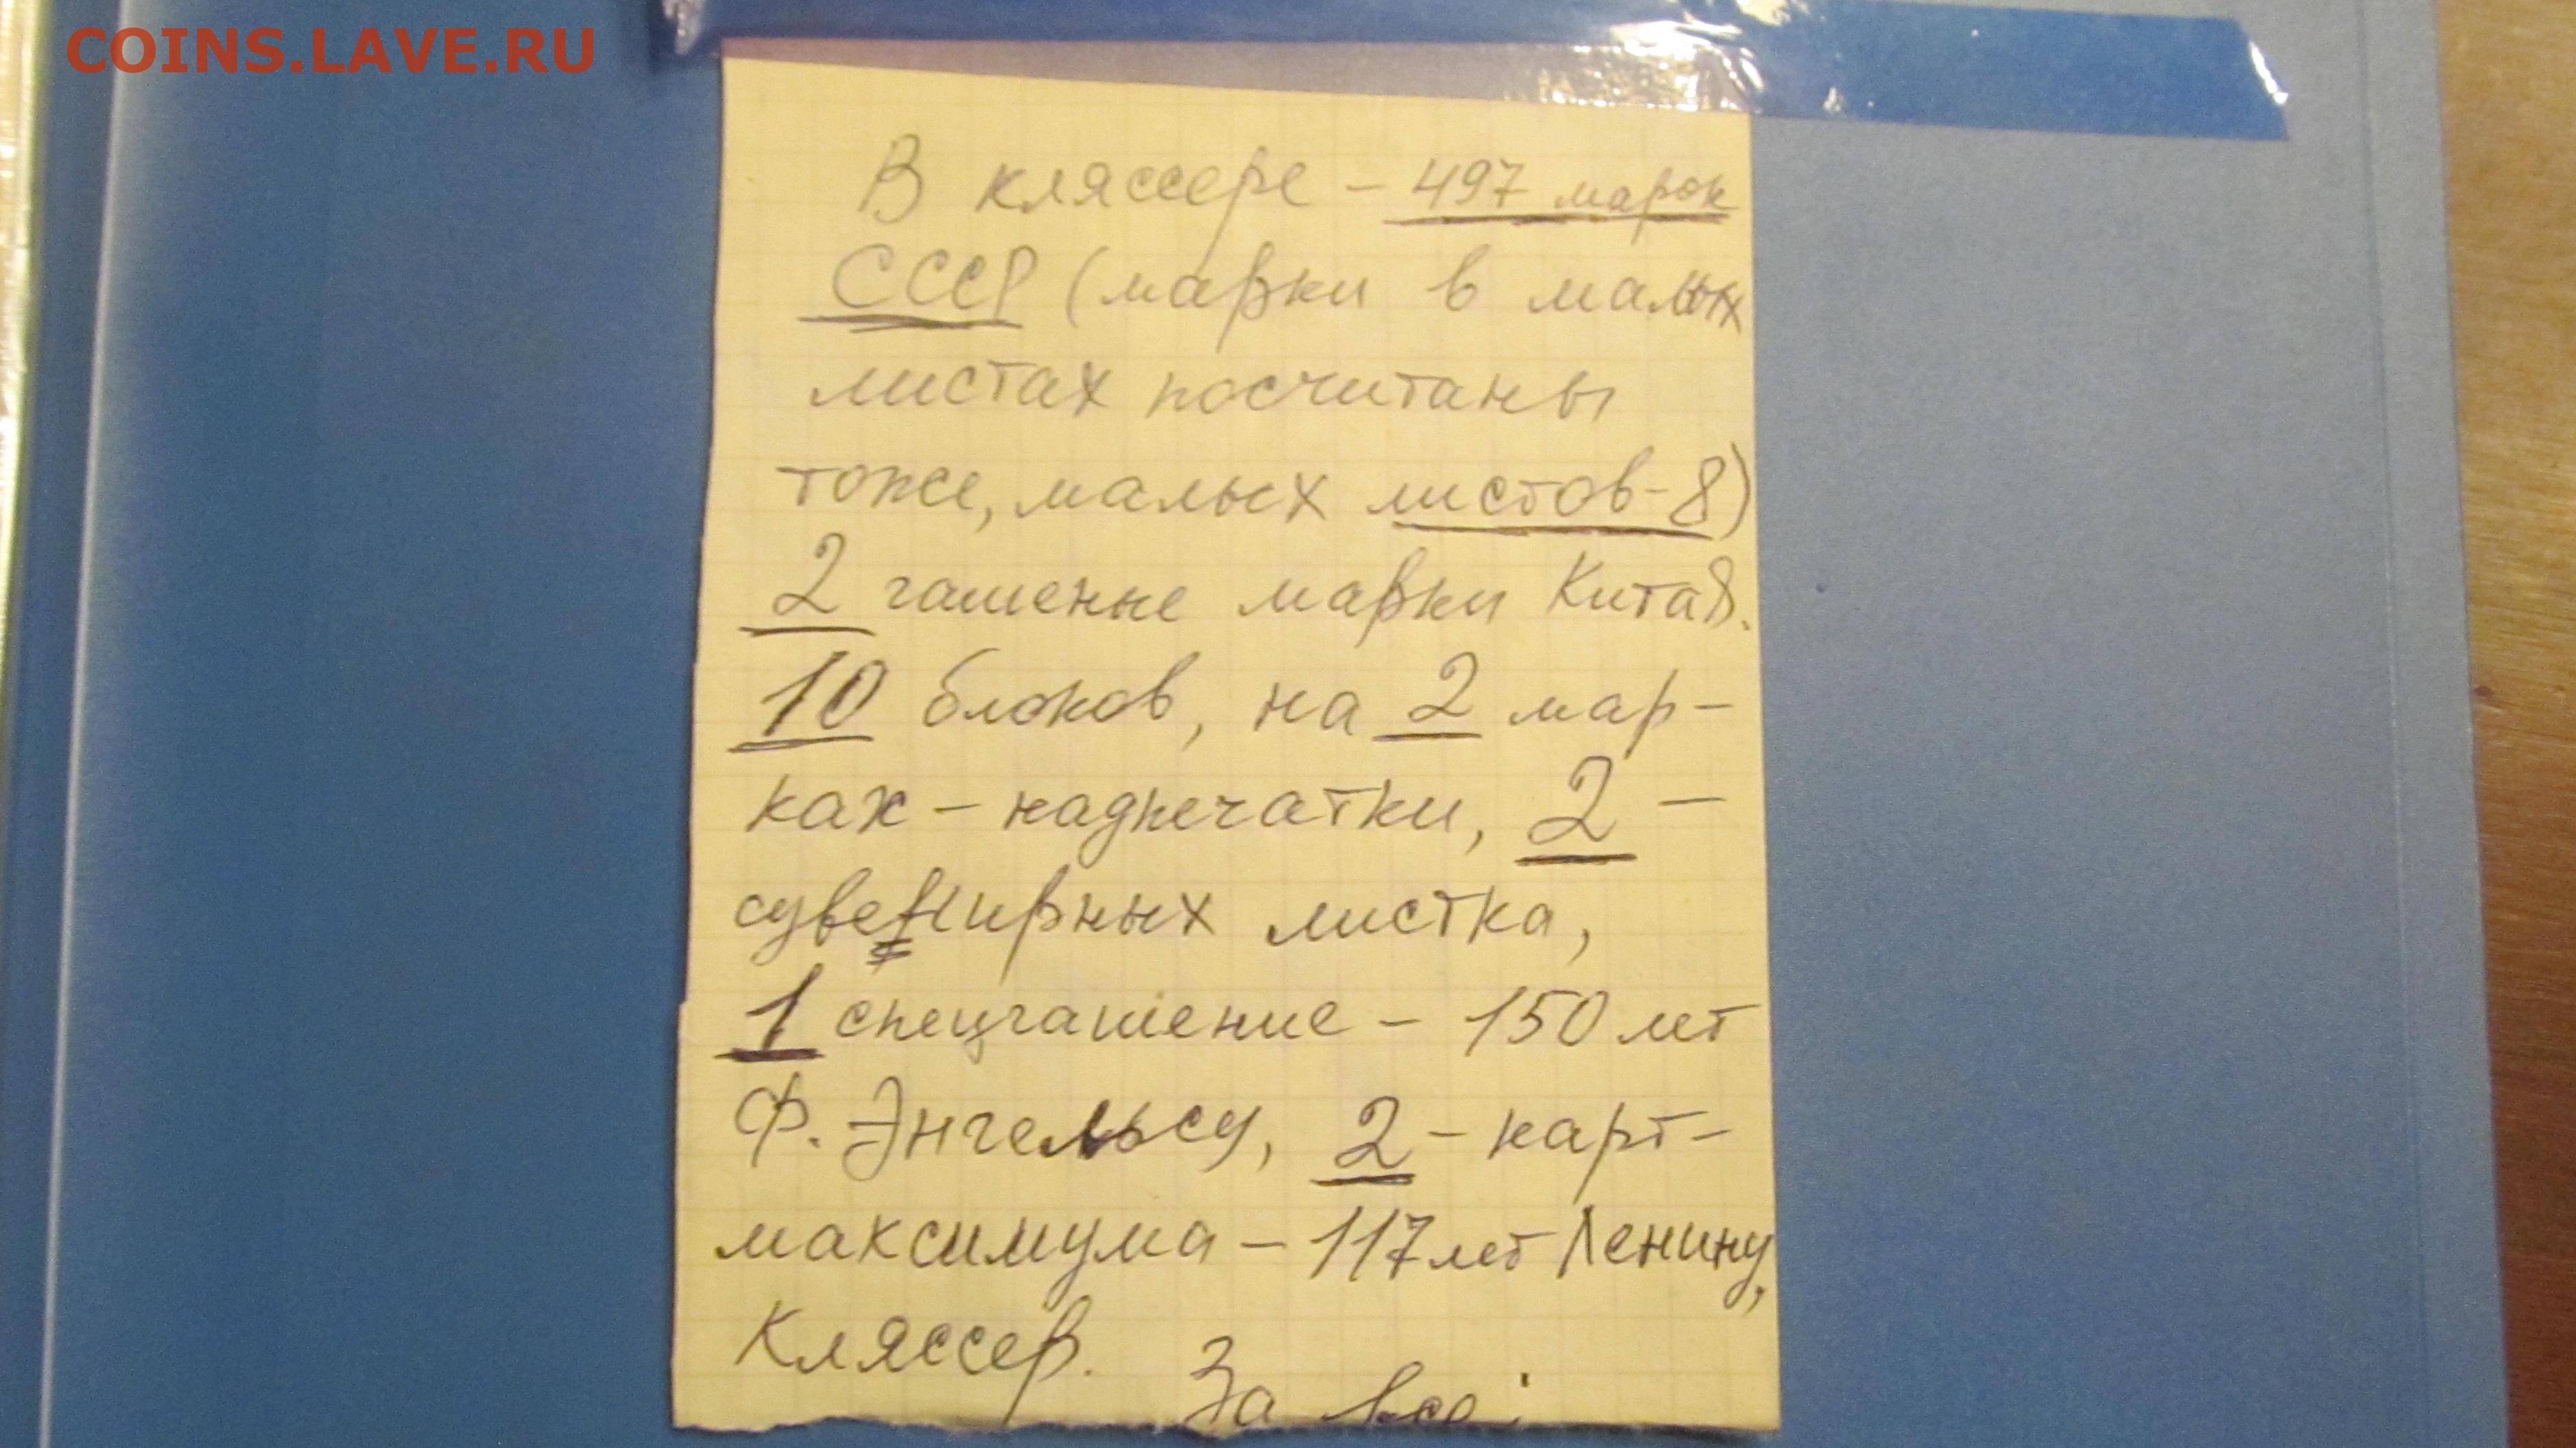 COINS.LAVE.RU
В кляссере – 497 марок
СССР (марки в малых
листах посчитаны
тоже, малых листов-8)
2 гашеные марки Китая.
10 блоков, на 2 мар-
ках – надпечатки, 2 –
сувенирных листка,
1 спецгашение – 150 лет
Ф. Энгельсу, 2 – карт-
максимума – 117 лет Ленину,
Кляссер. За все: